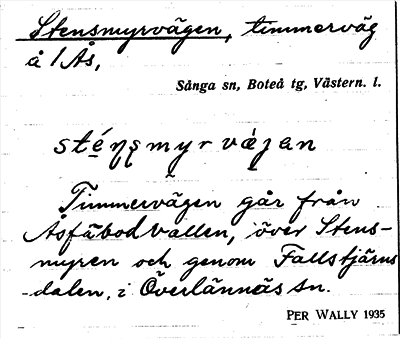 Stensmyrvägen, timmerväg
å 1 Ås,
Sånga sn, Boteå tg, Västern. l.
sténsmyrvägan
Timmervägen går från
Åsfäbodvallen, över Stens-
myren och genom Fallstjärns
-dalen, i Överlännäs sn.
PER WALLY 1935